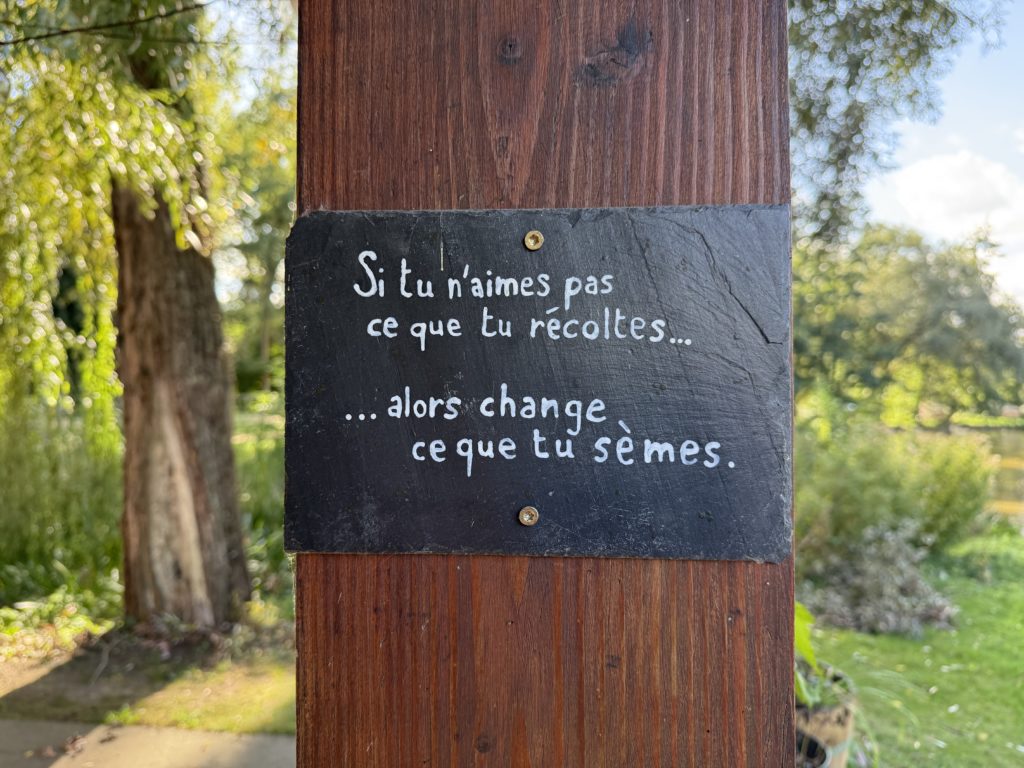 Si tu n'aimes pas
ce que tu récoltes...
...alors change
ce que tu sèmes.